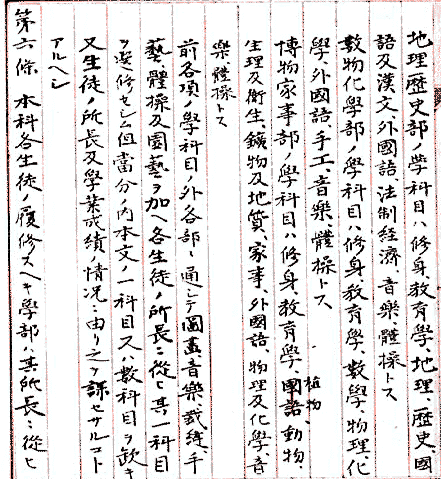 地理歴史部ノ学科目ハ修身、教育學、地理、歴史、國
語及漢文、外國語、法制経濟、音樂、體操トス
數物化學部ノ學科目ハ修身、教育學、數學、物理、化
學、外國語、手工、音樂、體操トス
博物家事部ノ學科目ハ修身、教育學、國語、動物、植物、
生理及衛生、鑛物及地質、家事、外國語、物理及化學、音
樂、體操トス
前各項ノ學科目ノ外各部ニ通シテ圖畫、音樂、裁縫、手
藝、體操及園藝ヲ加ヘ各生徒ノ所長ニ從ヒ其一科目
ヲ選修セシム但當分ノ内本文ノ一科目又ハ數科目ヲ欠キ
又生徒ノ所長及學業成績ノ情況ニ由リ之ヲ課セサルコト
アルヘシ
第六條 本科各生徒ノ履修スヘキ學部ハ其所長ニ從ヒ